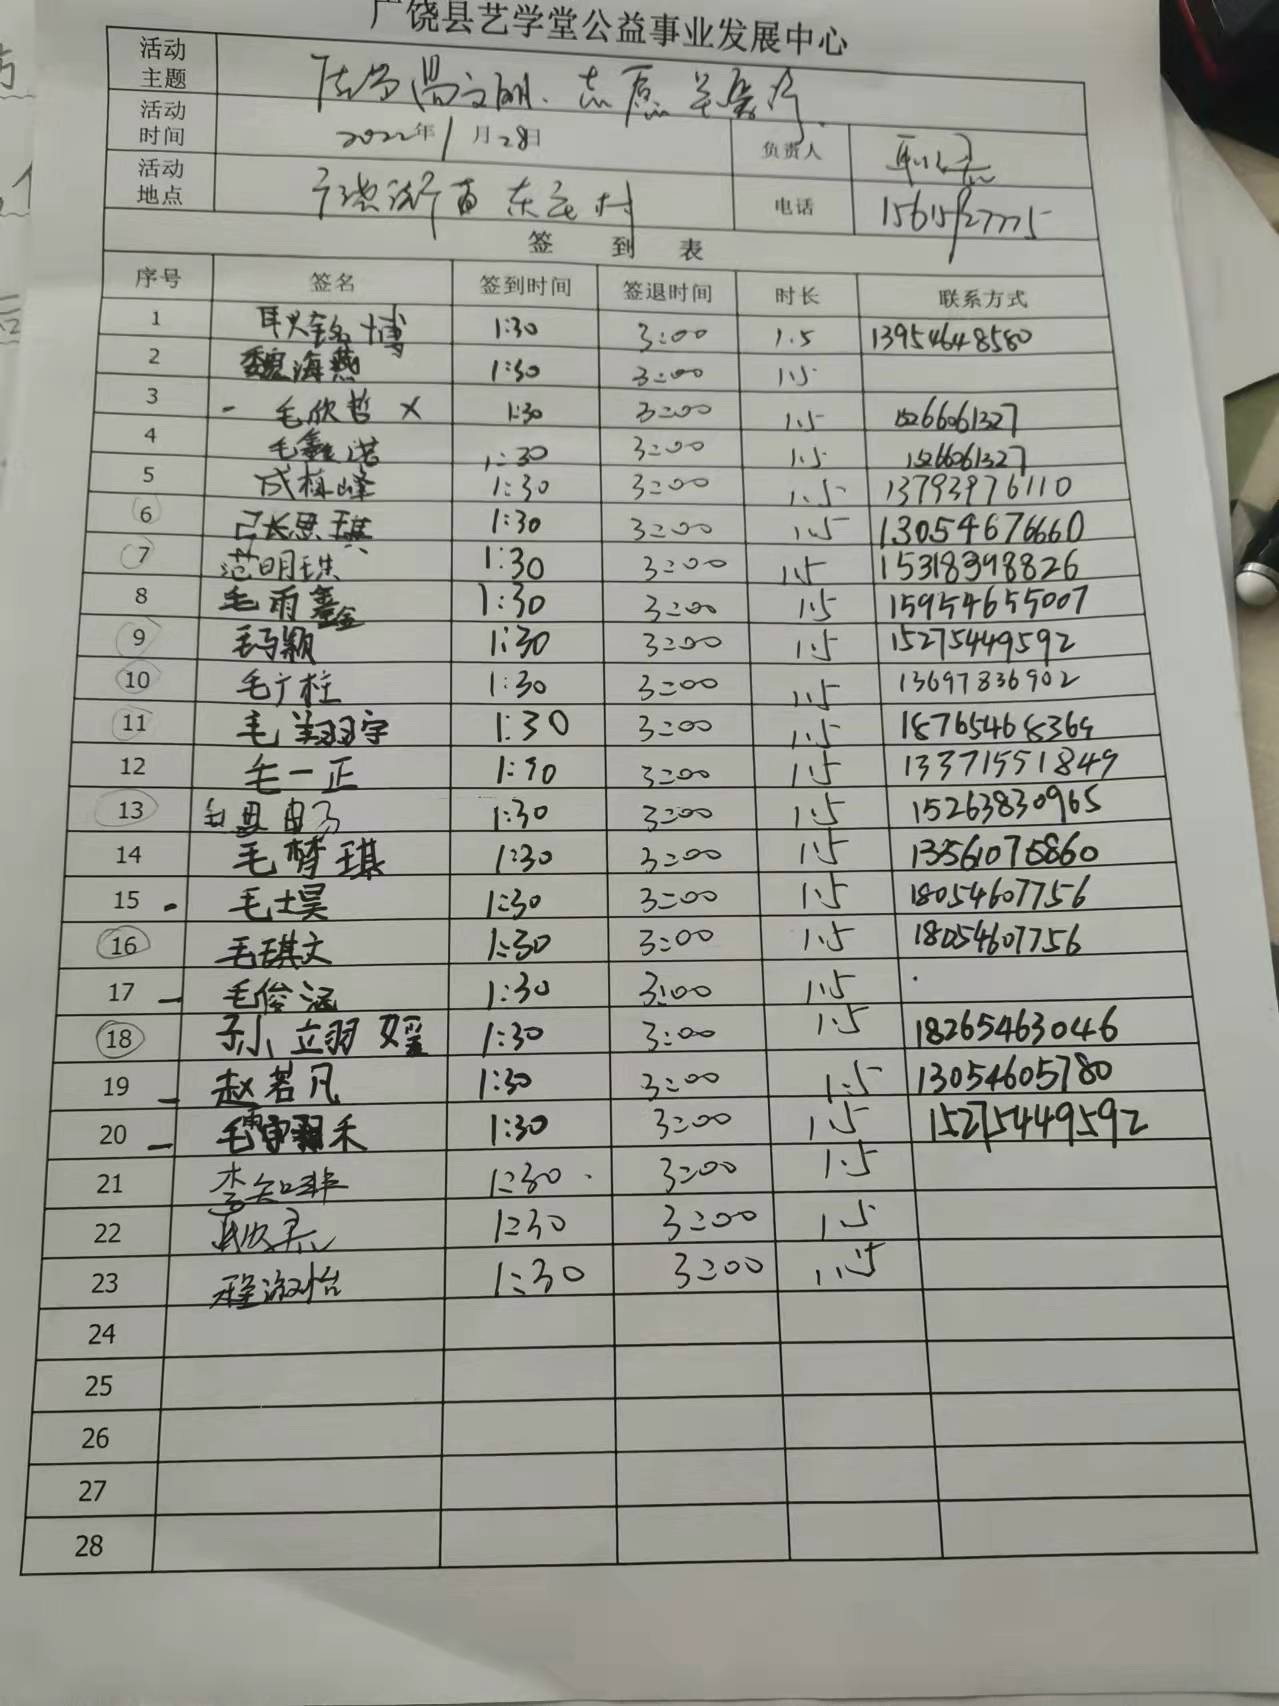 广饶县艺学堂公益事业发展中心
活动主题 文明、志愿
活动时间 2022年1月28日 负责人
活动地点 村 电话 15615127775
签到表
序号 签名 签到时间 签退时间 时长 联系方式
1 耿铭博 1:30 3:00 1.5 13954648580
2 魏海燕 1:30 3:00 1.5
3 - 毛欣哲 × 1:30 3:00 1.5 15266061327
4 毛鑫诺 1:30 3:00 1.5 15266061327
5 成植峰 1:30 3:00 1.5 13793976110
6 思琪 1:30 3:00 1.5 13054676660
7 范明珠 1:30 3:00 1.5 15318398826
8 毛雨鑫 1:30 3:00 1.5 15954655007
9 毛颖 1:30 3:00 1.5 15275449592
10 毛广柱 1:30 3:00 1.5 13697836902
11 毛翔宇 1:30 3:00 1.5 18765468369
12 毛一正 1:30 3:00 1.5 13371551849
13 1:30 3:00 1.5 15263830965
14 毛梦琪 1:30 3:00 1.5 13561075860
15 毛士昊 1:30 3:00 1.5 18054607756
16 毛琪文 1:30 3:00 1.5 18054607756
17 - 毛俊涵 1:30 3:00 1.5
18 孙立翌媛 1:30 3:00 1.5 18265463046
19 - 赵若凡 1:30 3:00 1.5 13054605780
20 - 毛 禾 1:30 3:00 1.5 15275449592
21 李知非 1:30 3:00 1.5
22 1:30 3:00 1.5
23 程淑怡 1:30 3:00 1.5
24
25
26
27
28